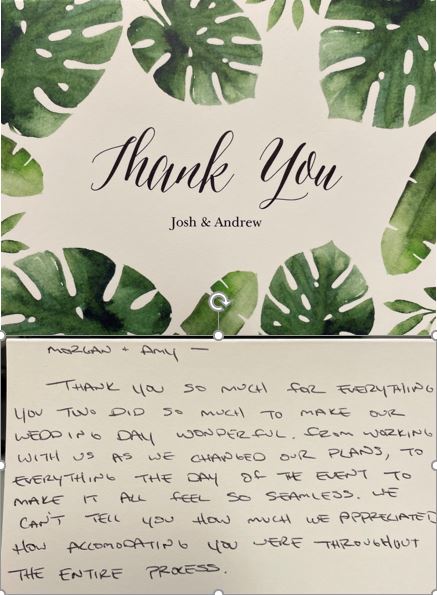 Thank You
Josh & Andrew
MORGAN + AMY —
THANK YOU SO MUCH FOR EVERYTHING
YOU TWO DID SO MUCH TO MAKE OUR
WEDDING DAY WONDERFUL. FROM WORKING
WITH US AS WE CHANGED OUR PLANS, TO
EVERYTHING THE DAY OF THE EVENT TO
MAKE IT ALL FEEL SO SEAMLESS. WE
CAN'T TELL YOU HOW MUCH WE APPRECIATED
HOW ACCOMODATING YOU WERE THROUGHOUT
THE ENTIRE PROCESS.